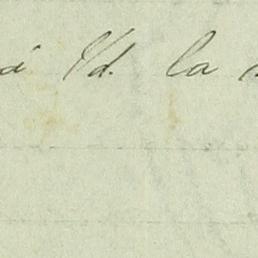 á Ud. la